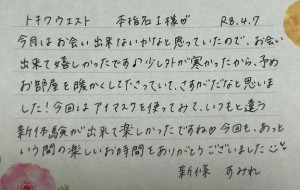 トキワウエスト 本指名I様♡ R8.4.7
今月はお会い出来ないかなと思っていたので、お会い
出来て嬉しかったです♪少し外が寒かったから、予め
お部屋を暖かくしてたさっていて、さすがだなと思いま
した！今回はアイマスクを使ってみて、いつもと違う
新体験が出来て楽しかったですね♡今回も、あっと
いう間の楽しいお時間をありがとうございました
新條 すみれ